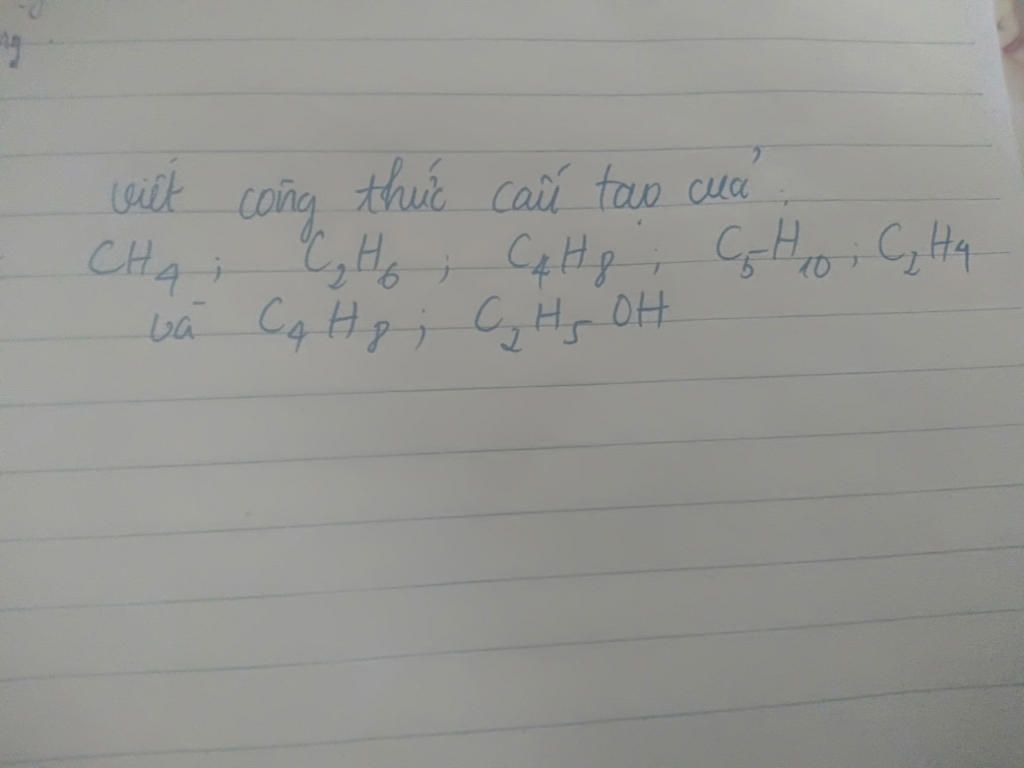 ng
viết công thức cấu tạo của:
CH4; C2H6; C4H8; C5H10; C2H4
và C4H8; C2H5OH